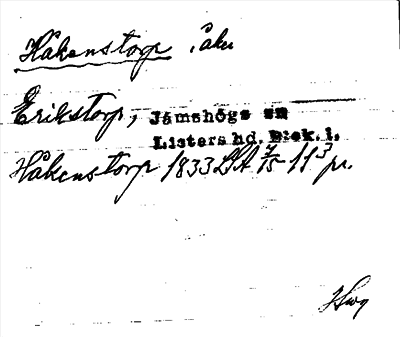 Håkenstorp, åker
Erikstorp, Jämshögs sn
Listers hd. Blek. l.
Håkenstorp 1833 LSA 7/15 11³ pr.